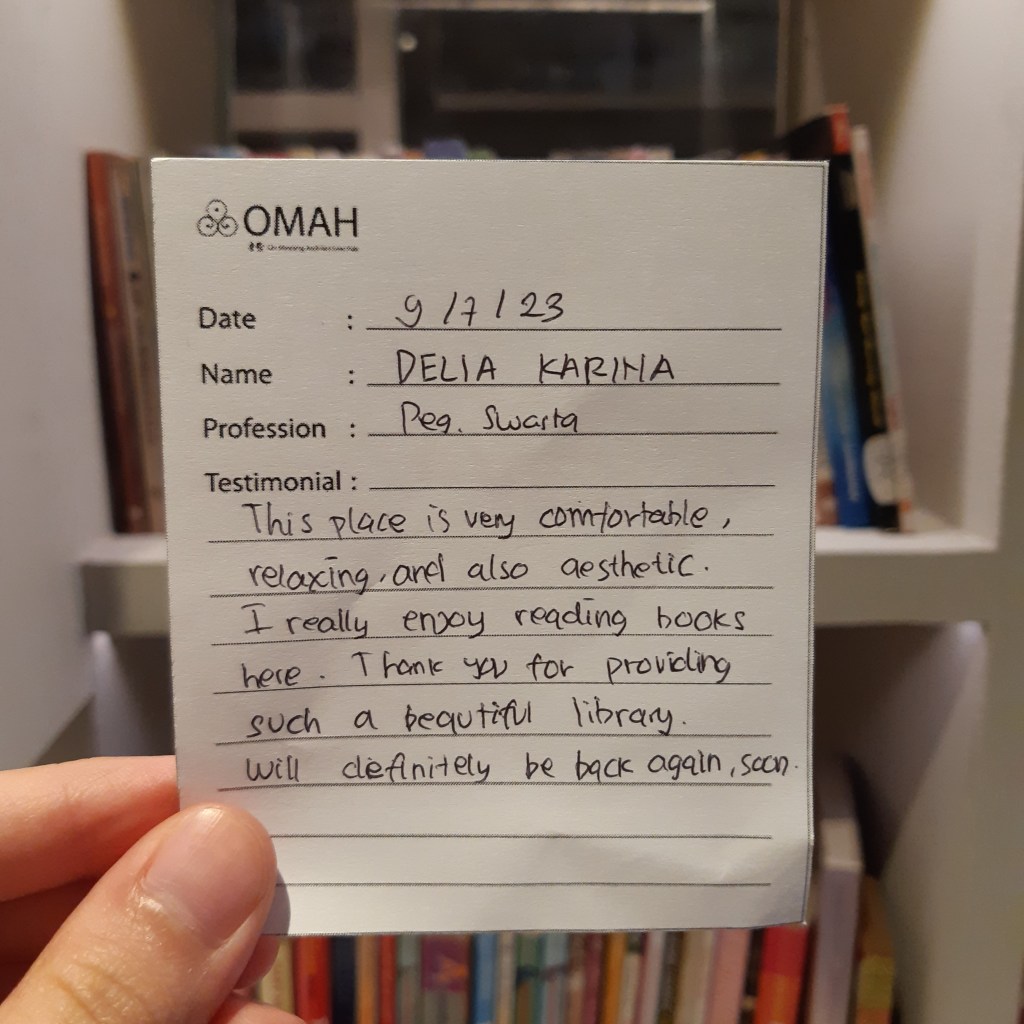 OMAH
Date : 9/7/23
Name : DELIA KARINA
Profession : Peg. Swasta
Testimonial :
This place is very comfortable,
relaxing, and also aesthetic.
I really enjoy reading books
here. Thank you for providing
such a beautiful library.
Will definitely be back again, soon.